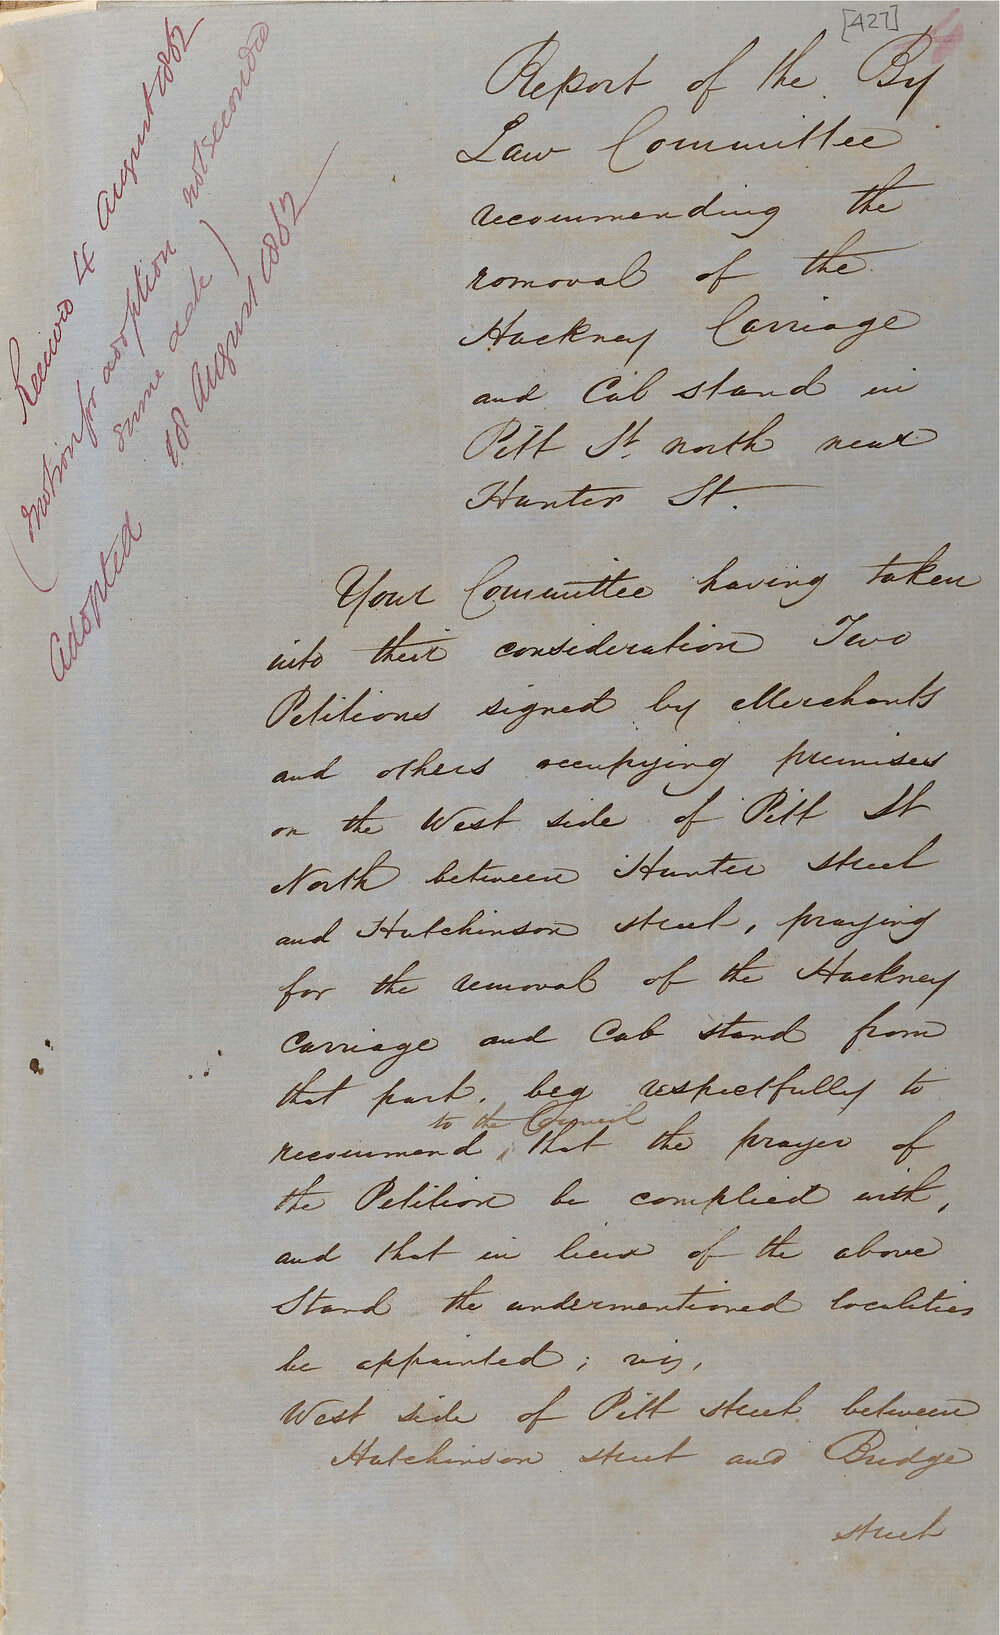 [427]
Received 4 August 1862
(motion for adoption not seconded
same date)
Adopted 18 August 1862
Report of the By
Law Committee
recommending the
removal of the
Hackney Carriage
and Cab stand in
Pitt St. north near
Hunter St.
Your Committee having taken
into their consideration Two
Petitions signed by Merchants
and others occupying premises
on the West side of Pitt St
North between Hunter street
and Hutchinson street, praying
for the removal of the Hackney
Carriage and Cab stand from
that part, beg respectfully to
to the Council
recommend, that the prayer of
the Petition be complied with,
and that in lieu of the above
Stand the undermentioned localities
be appointed; viz,
West side of Pitt street between
Hutchinson street and Bridge
street